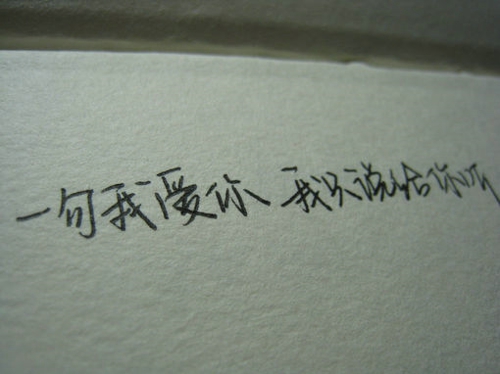 一句我爱你 我只说给你听